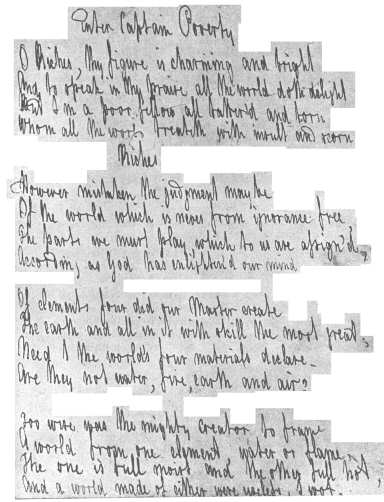 Enter Captain Poverty
O Riches, thy figure is charming and bright
And to speak in thy praise all the world doth delight
But I'm a poor fellow all tatter'd and torn
Whom all the world treateth with insult and scorn
Riches
However mistaken the judgment may be
Of the world which is never from ignorance free
The parts we must play which to us are assign'd,
According as God has enlighten'd our mind
Of elements four did our Master create
The earth and all in it with skill the most great,
Need I the world's four materials declare—
Are they not water, fire, earth and air?
Too wise was the mighty creator to frame
A world from one element, water or flame
The one is full moist and the other full hot
And a world made of either were useless, I wot